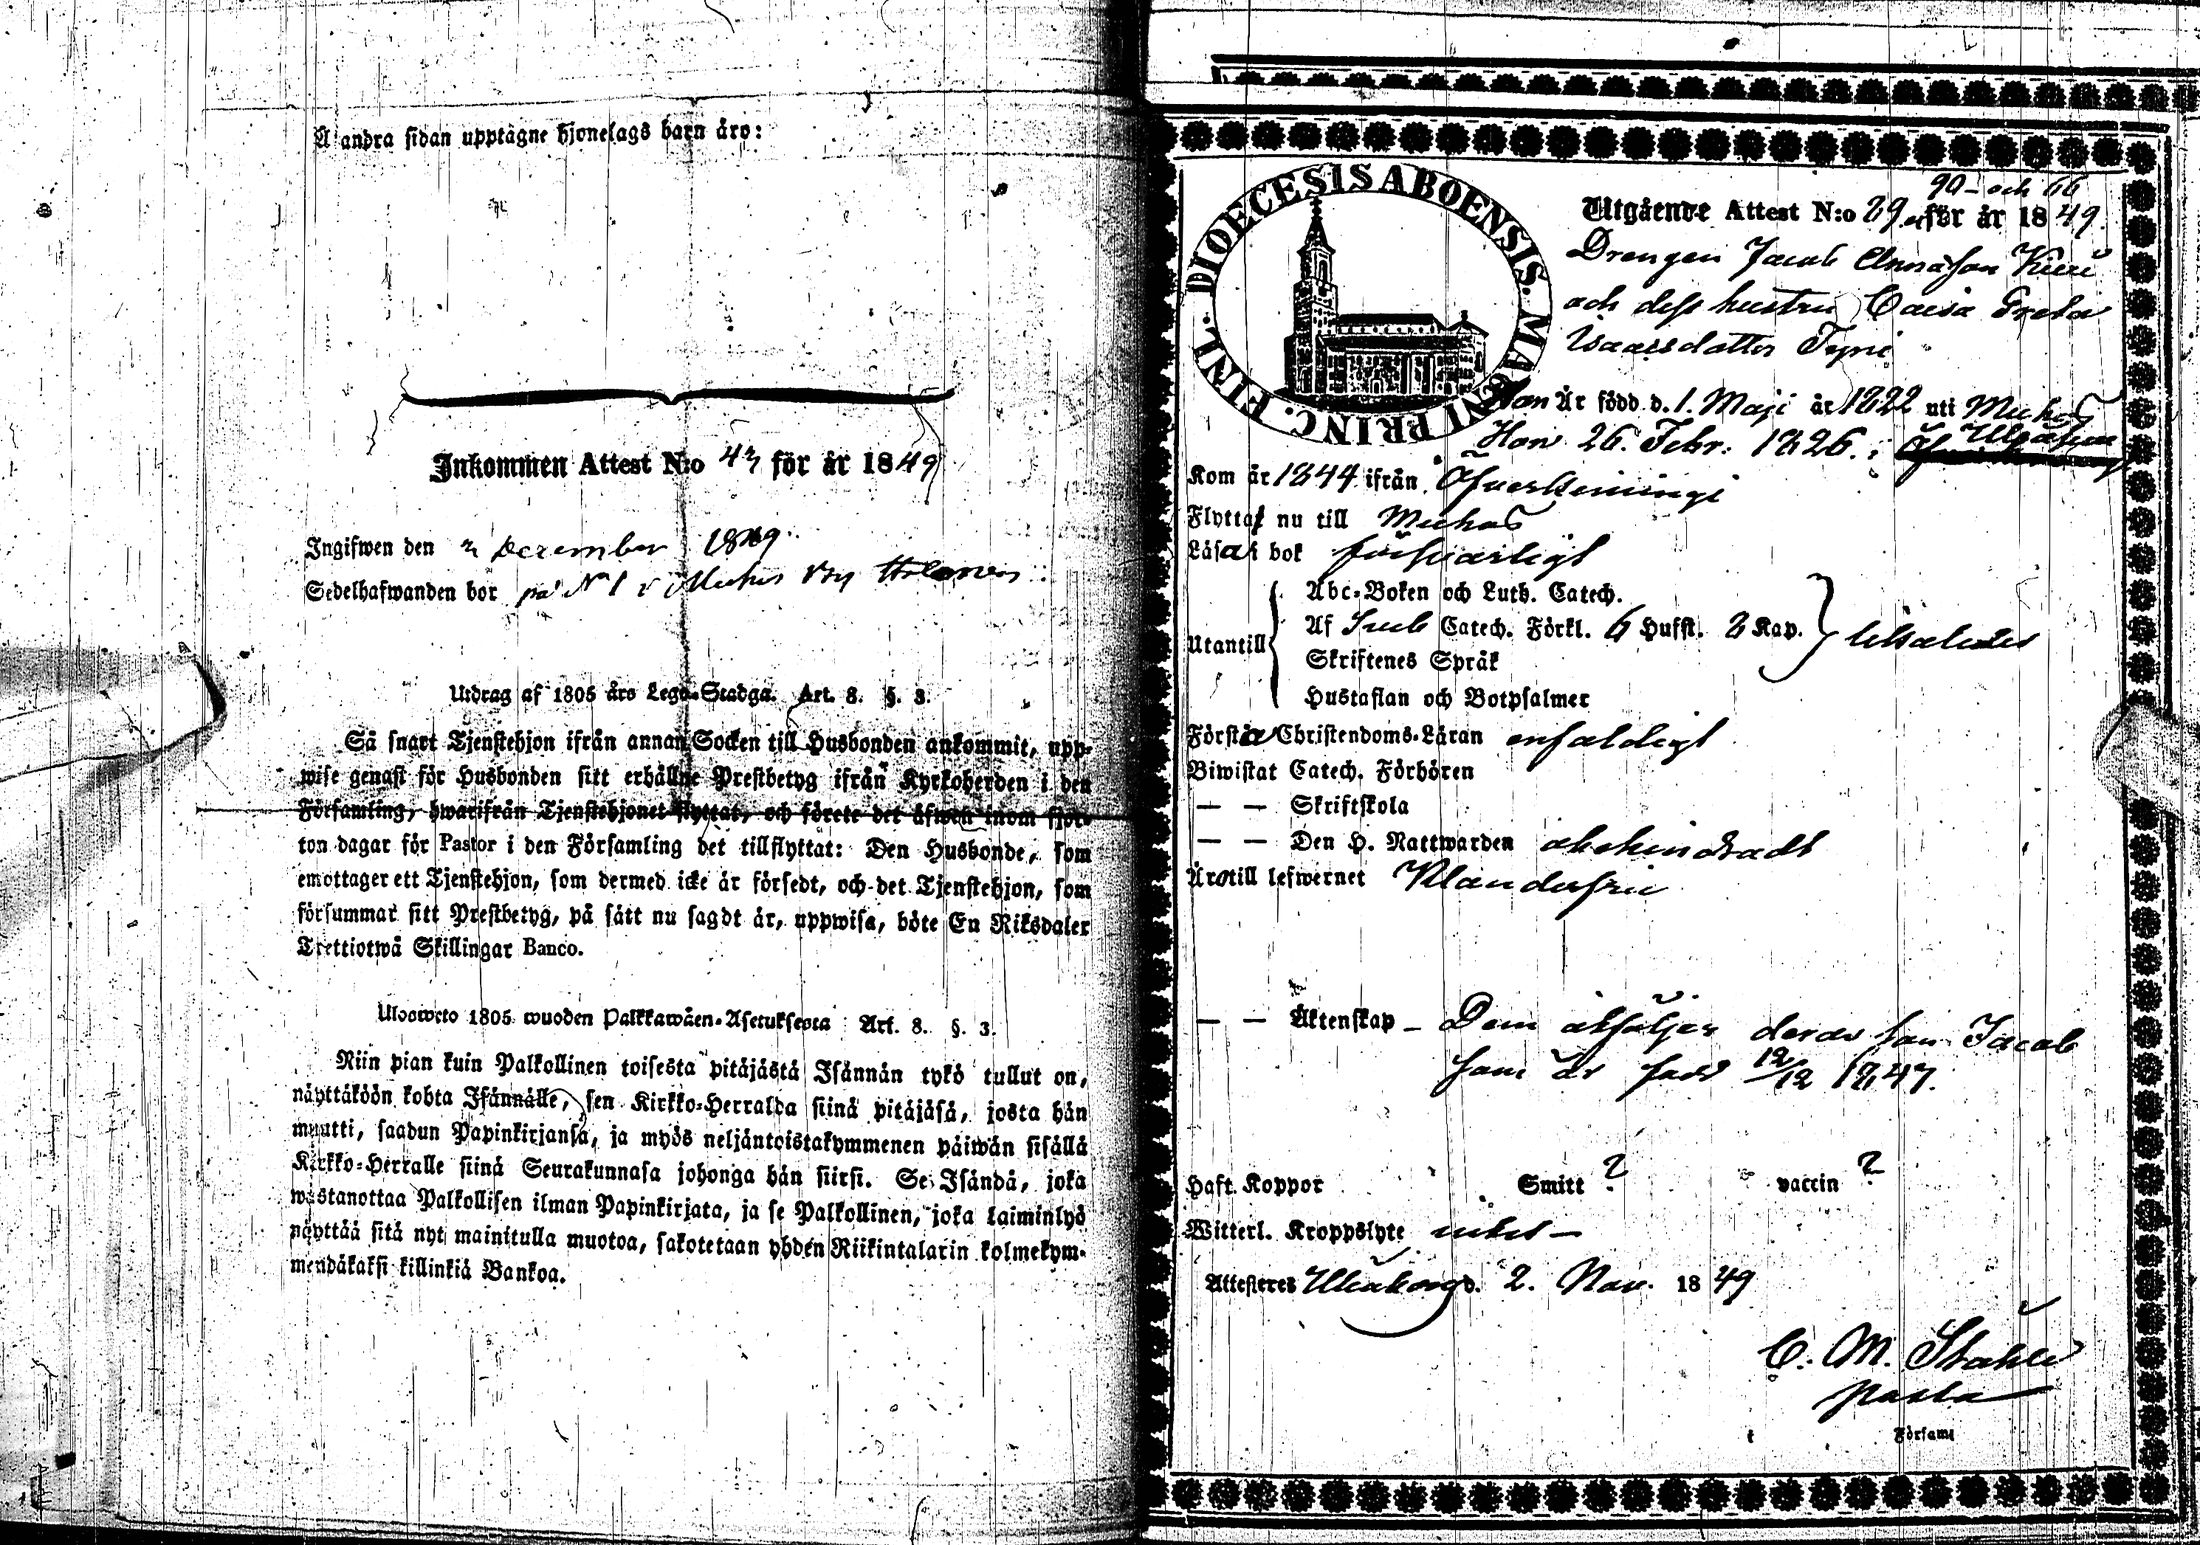 A andra sidan upptagne hjonelags barn äro:
Inkommen Attest N:o 43 för år 1849
Ingifwen den 2 December 1849.
Sedelhafwanden bor på N 1 i Muhos by
Utdrag af 1805 års Lego-Stadga. Art. 8. §. 3.
Så snart Tjenstehjon ifrån annan Socken till Husbonden ankommit, upp-
wise genast för Husbonden sitt erhållne Prestbetyg ifrån Kyrkoherden i den
Församling, hwarifrån Tjenstehjonet flyttat, och förete det äfwen inom fjor-
ton dagar för Pastor i den Församling det tillflyttat: Den Husbonde, som
emottager ett Tjenstehjon, som dermed icke är försedt, och det Tjenstehjon, som
försummar sitt Prestbetyg, på sätt nu sagdt är, uppwisa, böte En Riksdaler
Trettiotwå Skillingar Banco.
Ulosweto 1805 wuoden Palkkawäen-Asetuksesta Art. 8. §. 3.
Niin pian kuin Palkollinen toisesta pitäjästä Isännän tykö tullut on,
näyttäköön kohta Isännälle, sen Kirkko-Herralda siinä pitäjäsä, josta hän
muutti, saadun Papinkirjansa, ja myös neljäntoistakymmenen päiwän sisällä
Kirkko-Herralle siinä Seurakunnasa johonga hän siirsi. Se Isändä, joka
wastanottaa Palkollisen ilman Papinkirjata, ja se Palkollinen, joka laiminlyö
näyttää sitä nyt mainitulla muotoa, sakotetaan yhden Riikintalarin kolmekym-
mendäkaksi killinkiä Bankoa.
DIOECESIS ABOENSIS. MAGNI PRINC. FINL.
90 och 66
Utgående Attest N:o 89 för år 1849.
Drengen Jacob
och dess hustru Caisa Greta
Isaacsdotter
Han Är född d. 1. Maji år 1822 uti Muhos
Hon 26. Febr. 1826. i
Kom år 1844 ifrån
Flytta nu till Muhos
Läsa i bok försvarligt
Abc-Boken och Luth. Catech.
Af Sveb Catech. Förkl. 6 Hufst. 2 Kap.
Utantill
Skriftenes Språk
Hustaflan och Botpsalmer
Förstå Christendoms-Läran enfaldigt
Biwistat Catech. Förhören
— — Skriftskola
— — Den H. Nattwarden obehindradt
Äro till lefwernet Klanderfrie
— — Äktenskap – Dem åtföljer deras son Jacob
som är född 12/12 1847.
Haft Koppor Smitt ? vaccin ?
Witterl. Kroppslyte intet –
Attesteres Uleåborg d. 2. Nov. 1849
C. M. Ståhle
Församl